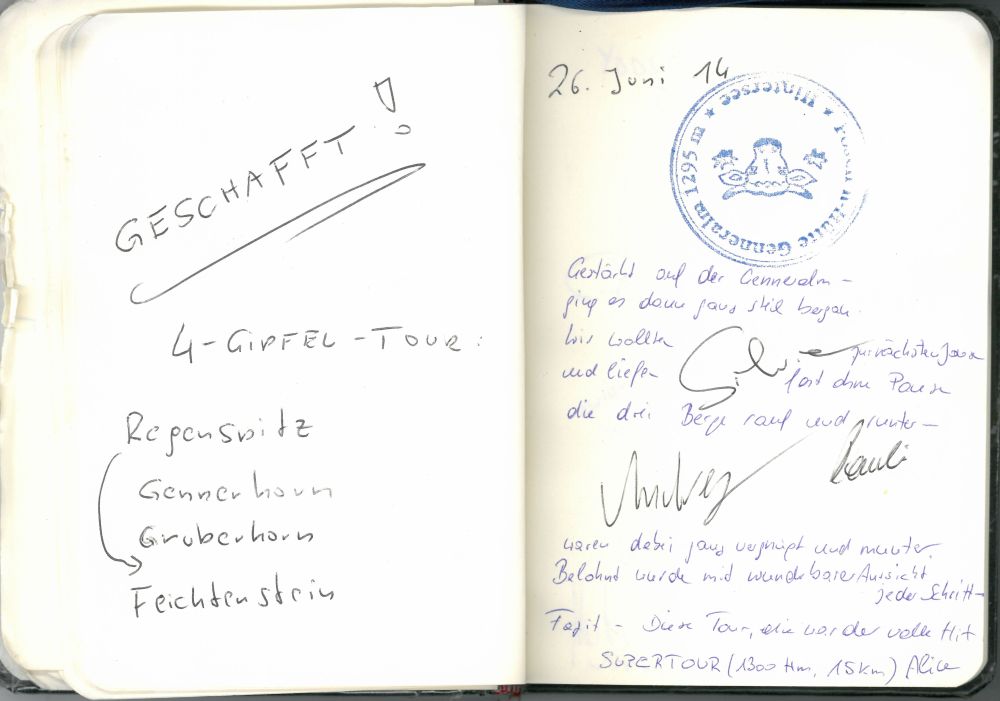 GESCHAFFT!
4-GIPFEL-TOUR:
Regenspitz
Gennerhorn
Gruberhorn
Feichtenstein
26. Juni 14
Hütte Genneralm 1295 m ★ Hintersee ★
Gestärkt auf der Genneralm -
ging es dann ganz steil bergan.
Wir wollten zur nächsten Jause
und liefen Silvie fast ohne Pause
die drei Berge rauf und runter -
waren dabei ganz vergnügt und munter.
Belohnt wurde mit wunderbarer Aussicht
jeder Schritt -
Fazit - Diese Tour, die war der volle Hit
SUPERTOUR (1300 Hm, 15km) Alice